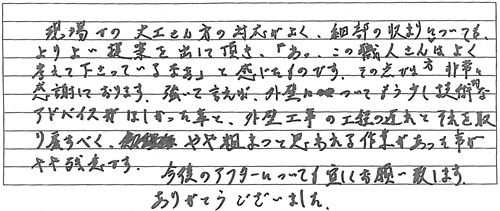 現場での大工さん方の対応がよく、細部の収まりについても、
よりよい提案を出して頂き、「あっ、この職人さんはよく
考えて下さっているなぁ」と感じたものです。その点では非常に
感謝しております。強いて言えば、外壁についてもう少し技術的な
アドバイスがほしかった事と、外壁工事の工程の遅れを
り戻すべく、やや粗まつと思われる作業があった事が
やや残念です。
今後のアフターについても宜しくお願い致します。
ありがとうございました。